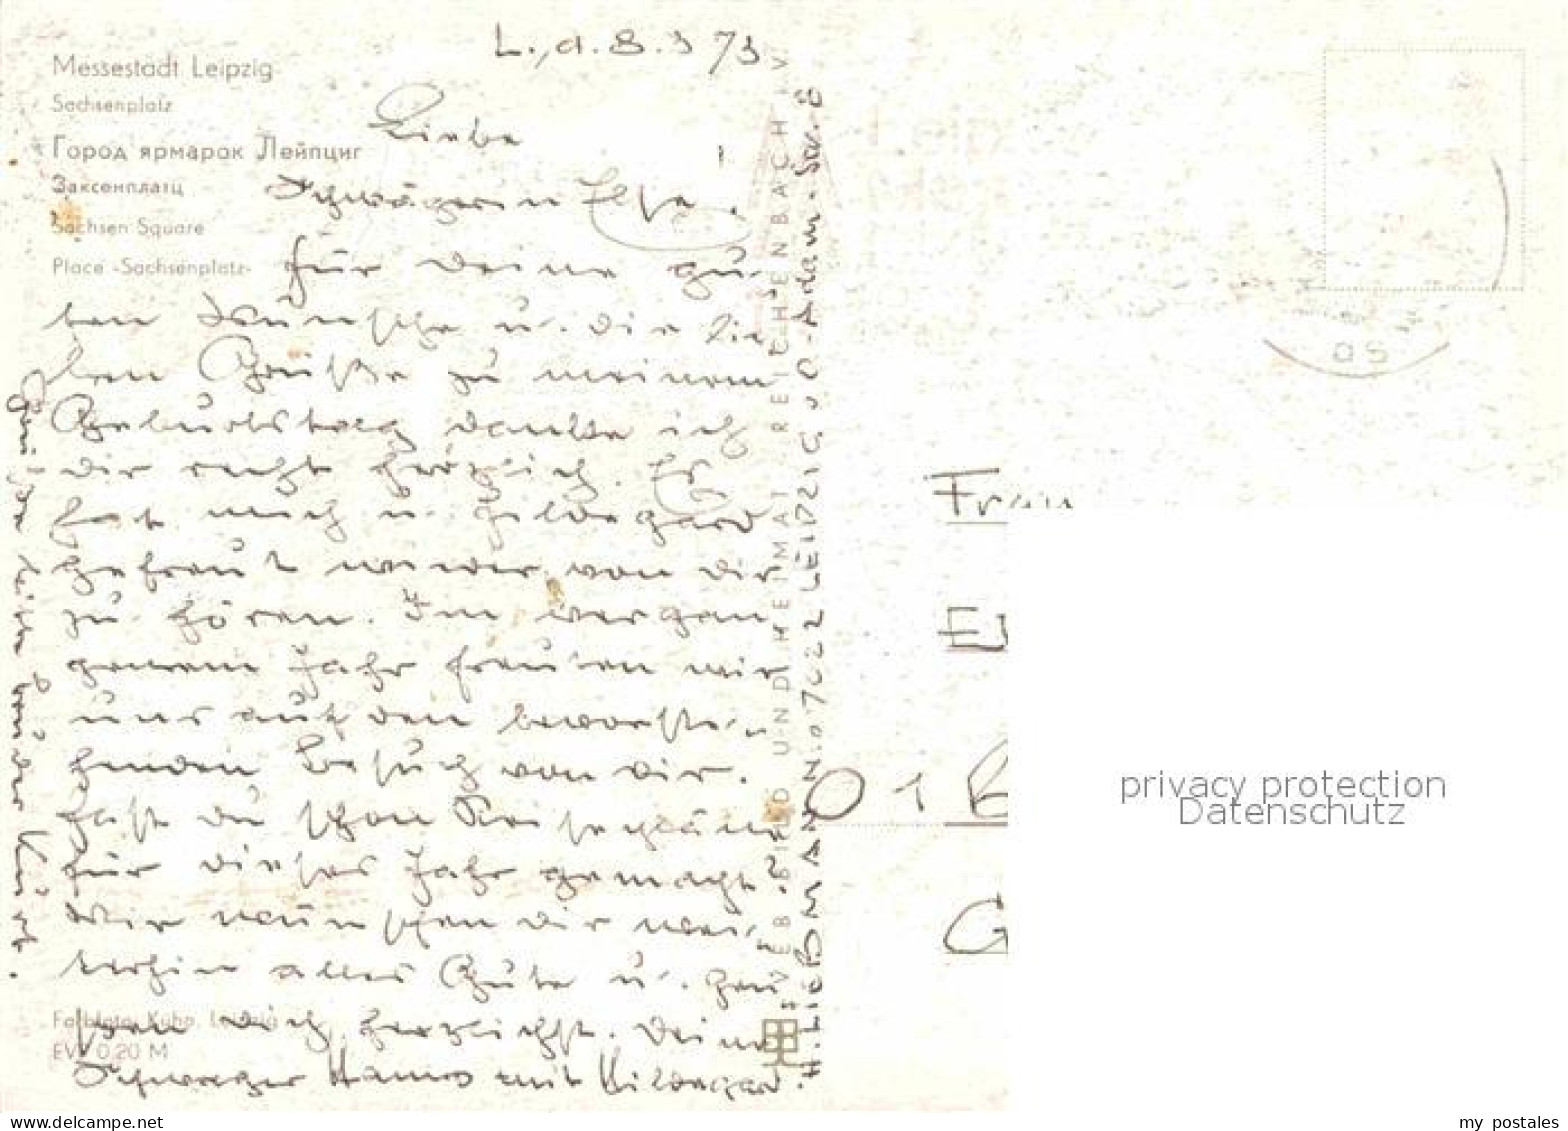 L., d. 8. 3 73
Messestadt Leipzig
Sachsenplatz
Город ярмарок Лейпциг
Заксенплатц
Sachsen Square
Place «Sachsenplatz»
Liebe
Schwägerin Else.
für Deine gu-
ten Wünsche u. die lie-
ben Grüße zu meinem
Geburtstag danke ich
dir recht herzlich. Es
hat mich u. Hildegard
gefreut wieder von dir
zu hören. Im vergan
genem Jahr freuten wir
uns auf den bevorste-
henden Besuch von dir.
Hast du schon Reisepläne
für dieses Jahr gemacht?
Wir wünschen dir wei-
terhin alles Gute u. grü-
ßen dich herzlichst. Deine
Schwager Hanns mit Hildegard.
Farbfoto: Kühn, Leipzig
EVP 0,20 M
VEB BILD UND HEIMAT REICHENBACH I. V.
H. LIEBMANN 7022 LEIPZIG
Frau
El
O 1
G
as
privacy protection
Datenschutz
www.delcampe.net
my_postales